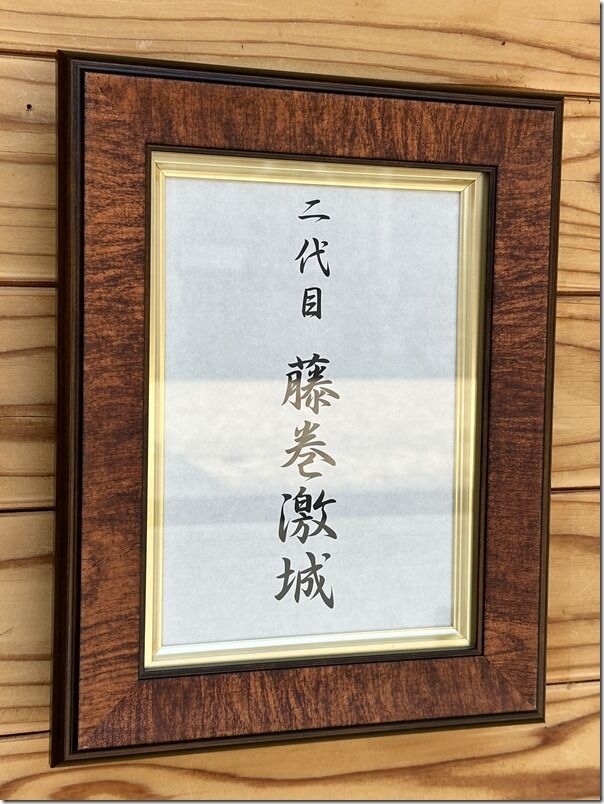 二代目 藤巻激城